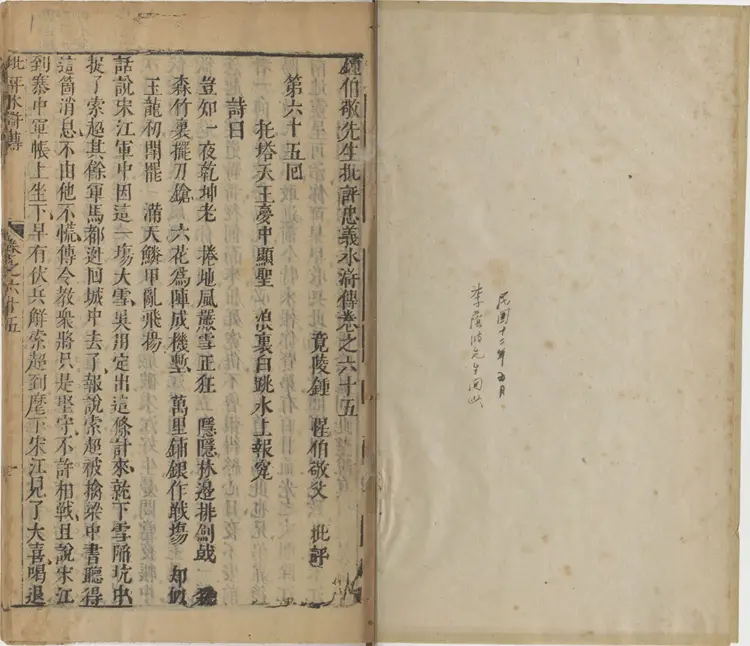 民國十二年五月
李
先生閱此
鍾伯敬先生批評忠義水滸傳卷之六十五
竟陵鍾 惺伯敬父 批評
第六十五回
托塔天王夢中顯聖 浪裏白跳水上報冤
詩曰
豈知一夜乾坤老 捲地風嚴雪正狂 隱隱林邊排劍戟 森
森竹裏擺刀鎗 六花爲陣成機塹 萬里鋪銀作戰場 却似
玉龍初鬭罷 滿天鱗甲亂飛揚
話說宋江軍中因這一塲大雪吳用定出這條計來就下雪陷坑中
捉了索超其餘軍馬都迯回城中去了報說索超被擒梁中書聽得
這箇消息不由他不慌傳令教衆將只是堅守不許相戰且說宋江
到寨中軍帳上坐下早有伏兵觧索超到麾下宋江見了大喜喝退
批評水滸傳 卷之六十五